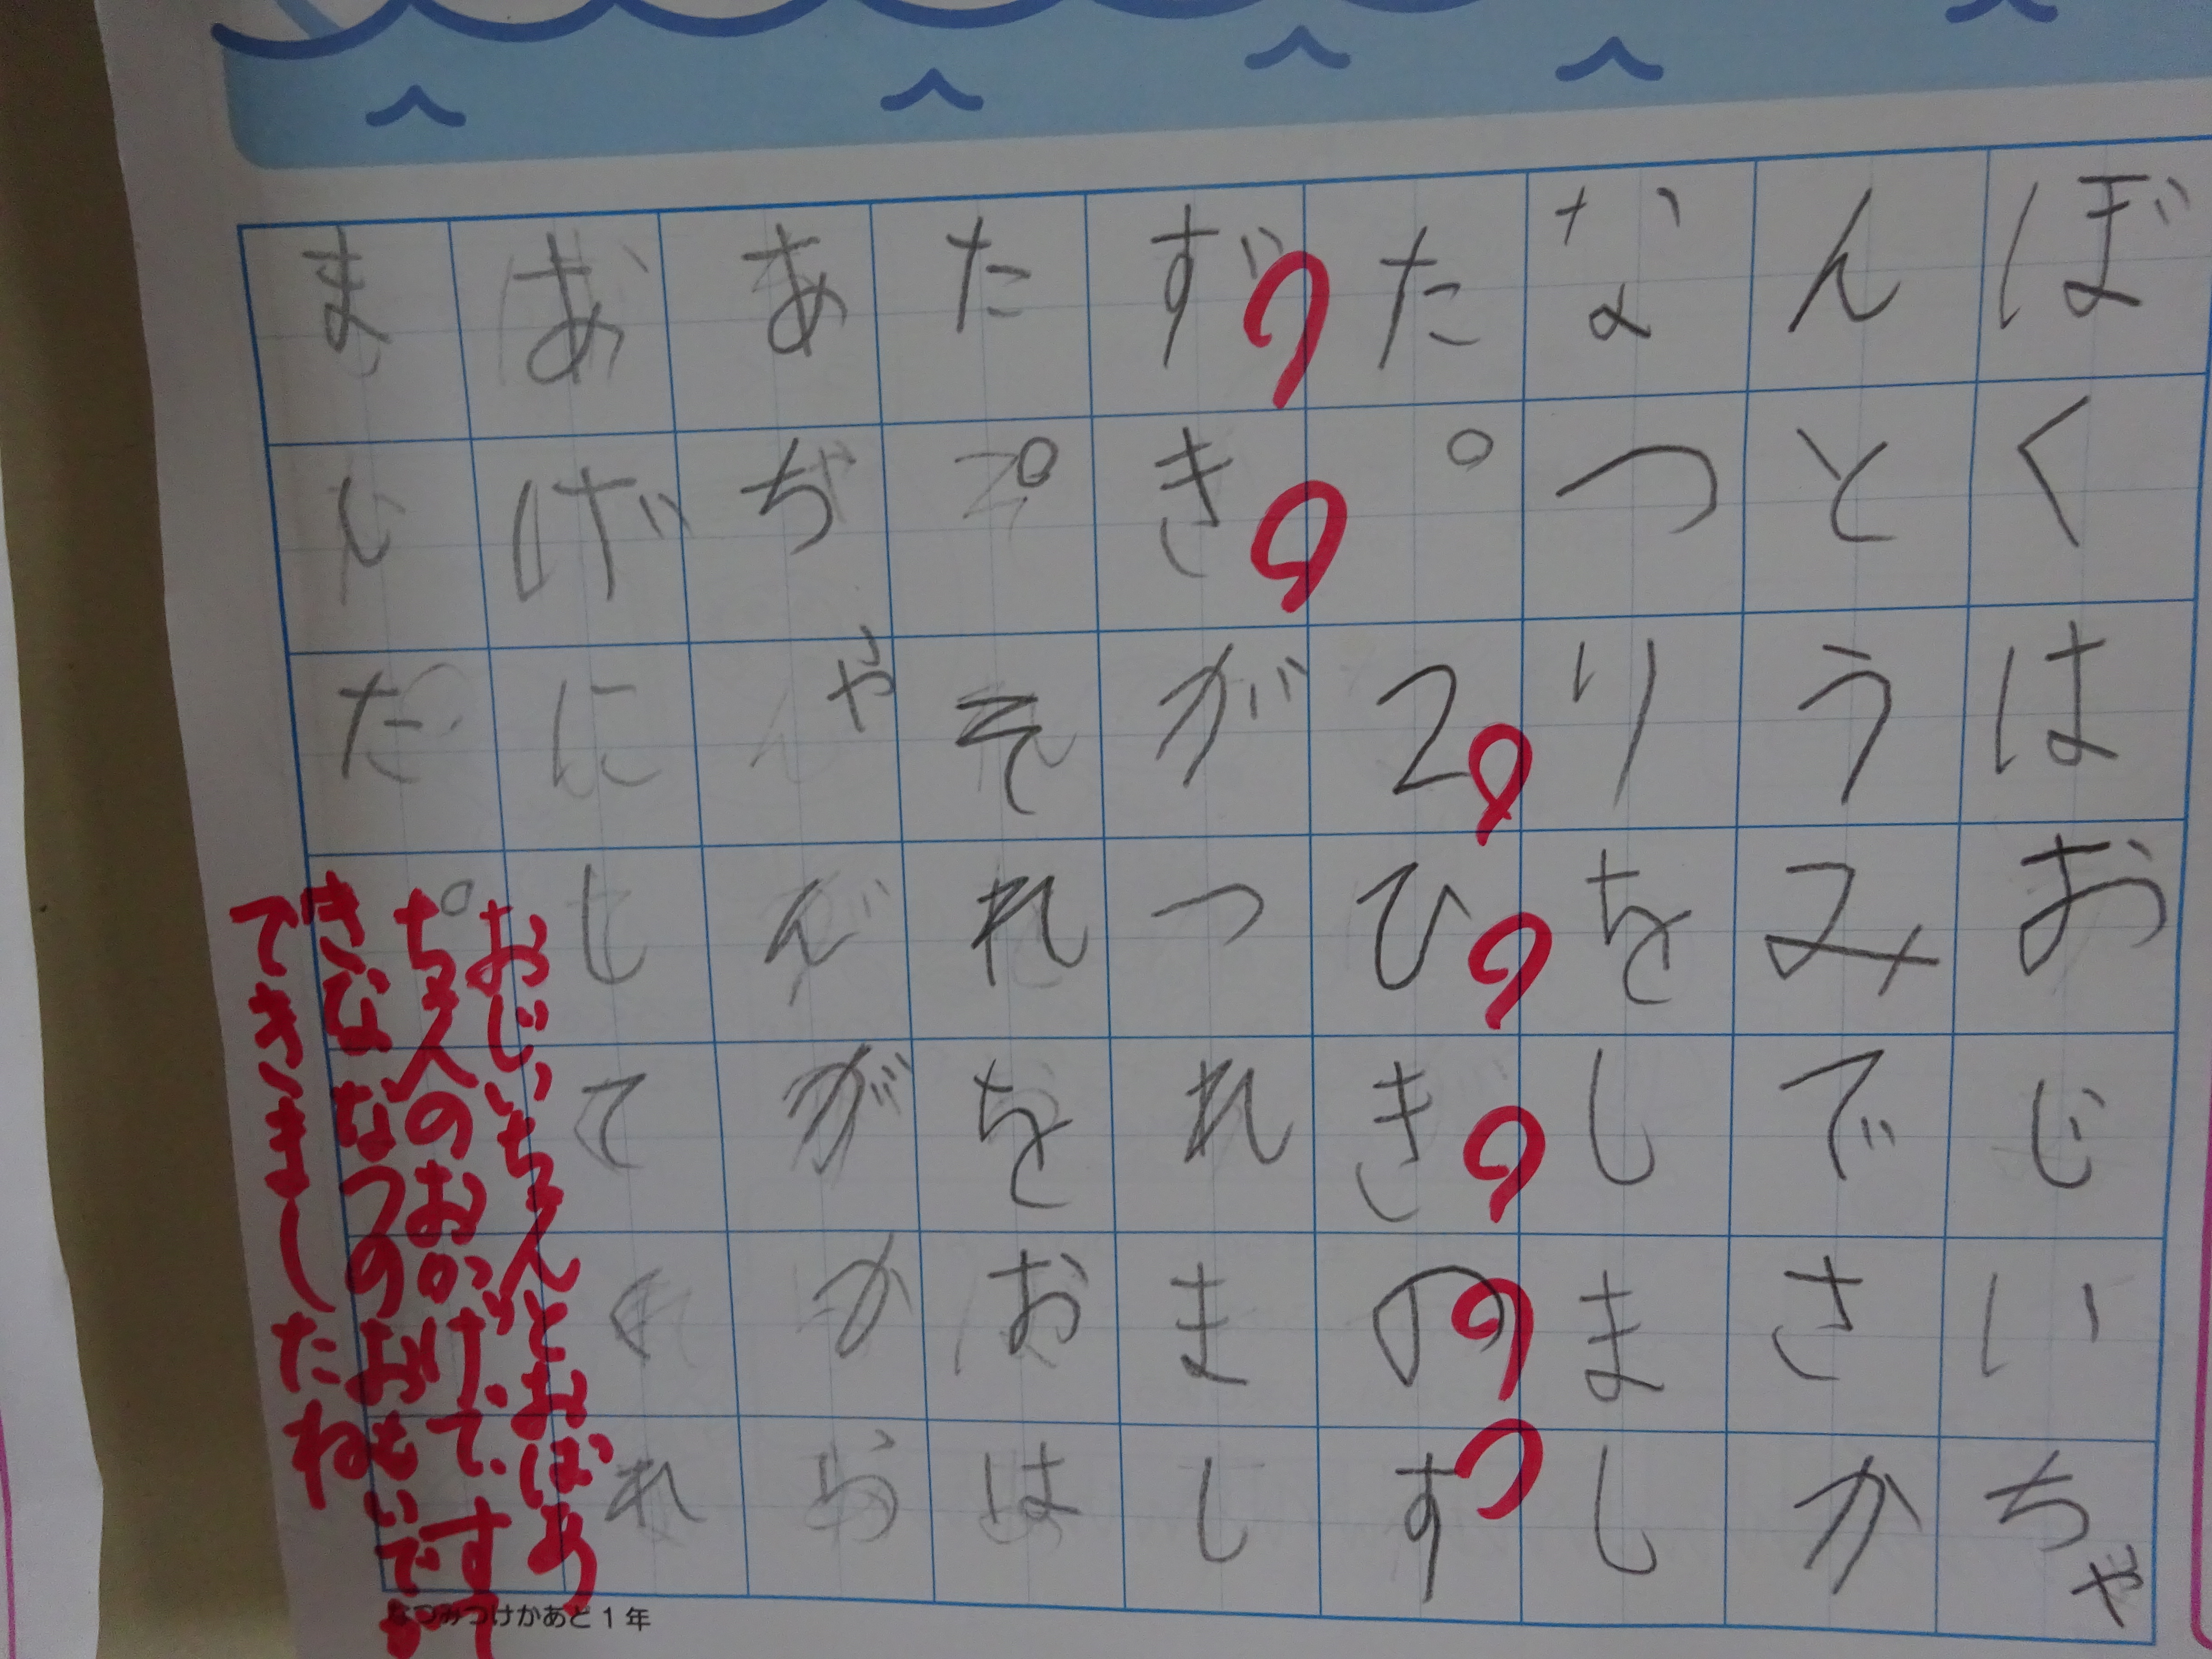 ぼくはおじいちゃ
んとうみでさかな
なつりをしまし
た。2ひきのす
ずきがつれまし
た。それをおは
あちゃんががお
あげにしてくれ
ました。
おじいちゃんとおばあ
ちゃんのおかげで、す
きななつのおもいで
できましたね
なつみつけかあど1年